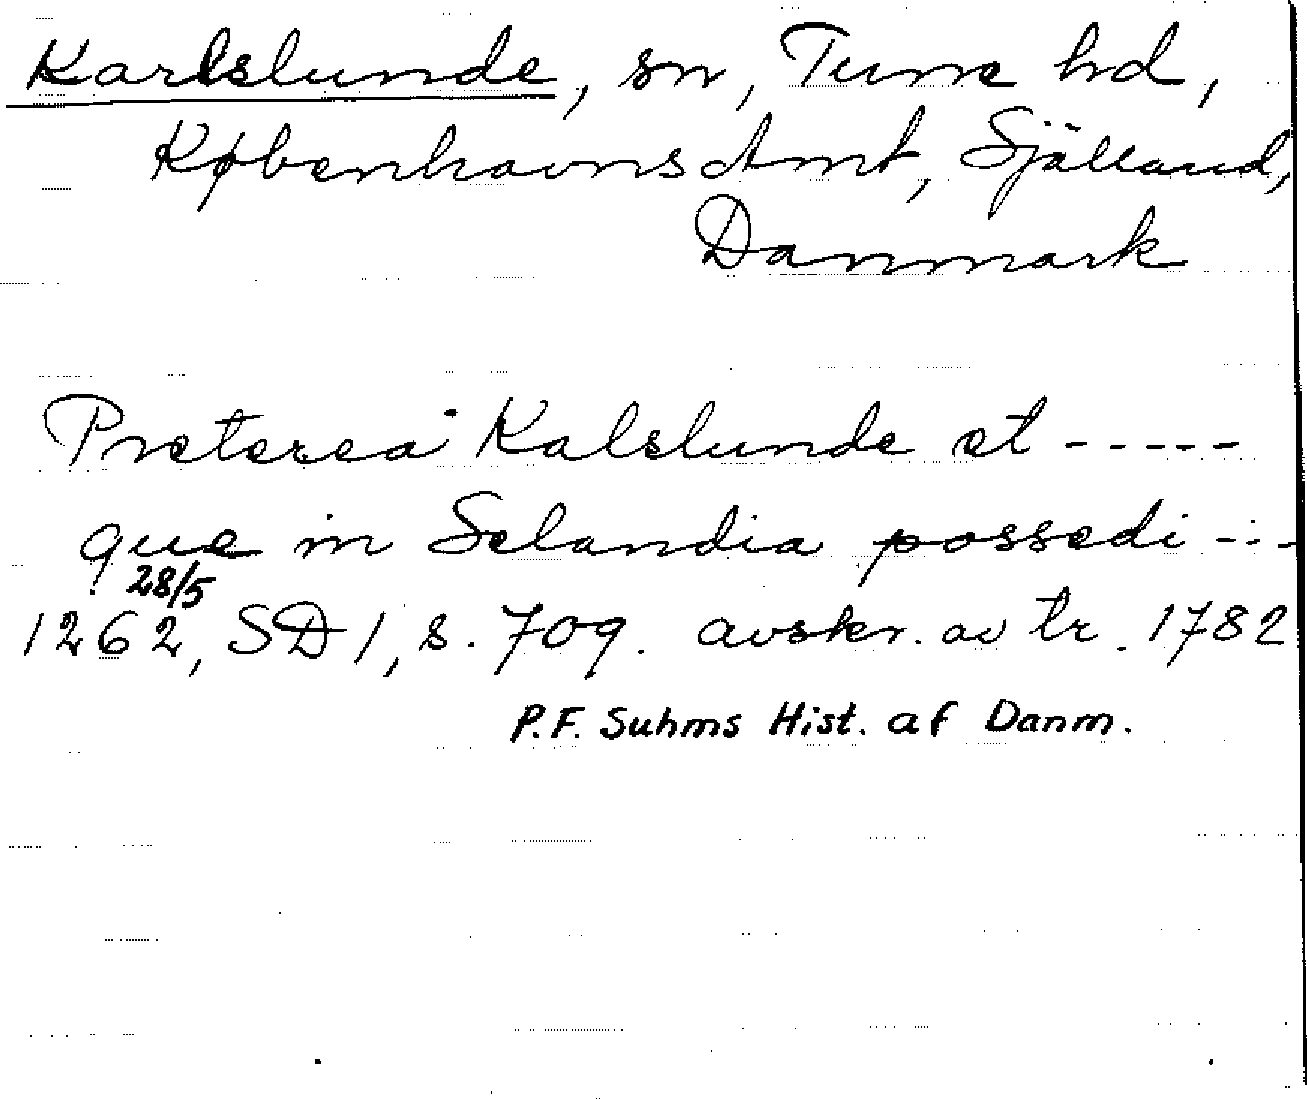 Karlslunde, sn, Tune hd,
Københavns Amt, Själland,
Danmark
Preterea Kalslunde et -----
que in Selandia possedi ---
28/5
1262, SD 1, s. 709. avskr. av tr. 1782
P.F. Suhms Hist. af Danm.